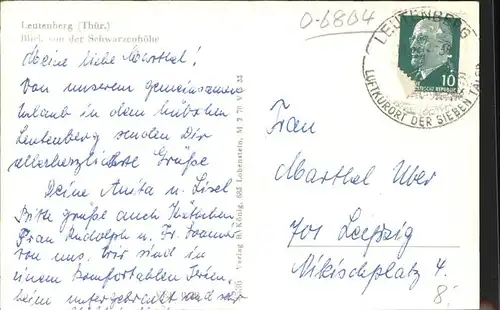 Leutenberg (Thür.)
Blick von der Schwarzenhöhe
Meine liebe Marthel!
Von unserem gemeinsamen
Urlaub in dem hübschen
Leutenberg senden Dir
allerherzlichste Grüße
Deine Anita u. Lisel
Bitte grüße auch
Frau Rudolph u. Fr.
von uns. Wir sind in
einem komfortablen Ferien-
heim untergebracht und sehr
Verlag R. König, 685 Lobenstein, M 2 70 V 33
0-6804
LEUTENBERG
LUFTKURORT DER SIEBEN TÄLER
10
DEUTSCHE
Frau
Marthel Uber
701 Leipzig
Nikischplatz 4.
8.